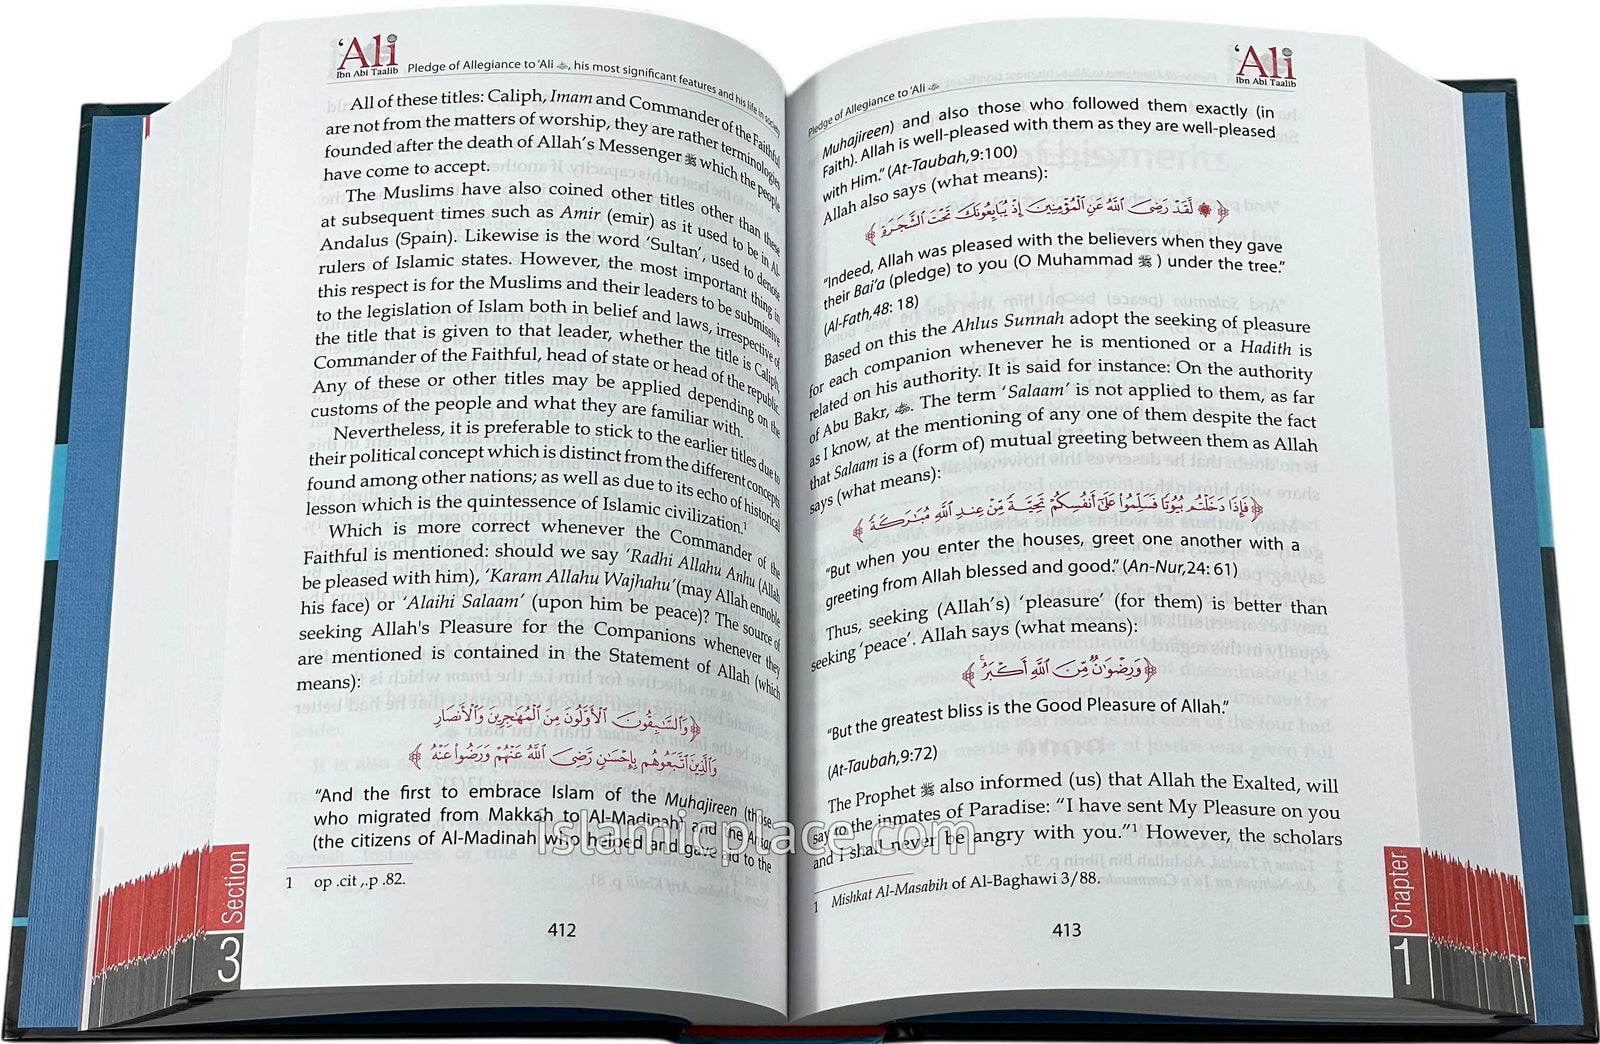 ‘Ali
Ibn Abi Taalib
Pledge of Allegiance to ‘Ali ؓ, his most significant features and his life in society
All of these titles: Caliph, Imam and Commander of the Faithful
are not from the matters of worship, they are rather terminologies
founded after the death of Allah’s Messenger ﷺ which the people
have come to accept.
The Muslims have also coined other titles other than these
at subsequent times such as Amir (emir) as it used to be in Al-
Andalus (Spain). Likewise is the word ‘Sultan’, used to denote
rulers of Islamic states. However, the most important thing in
this respect is for the Muslims and their leaders to be submissive
to the legislation of Islam both in belief and laws, irrespective of
the title that is given to that leader, whether the title is Caliph,
Commander of the Faithful, head of state or head of the republic.
Any of these or other titles may be applied depending on the
customs of the people and what they are familiar with.
Nevertheless, it is preferable to stick to the earlier titles due to
their political concept which is distinct from the different concepts
found among other nations; as well as due to its echo of historical
lesson which is the quintessence of Islamic civilization.1
Which is more correct whenever the Commander of the
Faithful is mentioned: should we say ‘Radhi Allahu Anhu (Allah
be pleased with him), ‘Karam Allahu Wajhahu’(may Allah ennoble
his face) or ‘Alaihi Salaam’ (upon him be peace)? The source of
seeking Allah's Pleasure for the Companions whenever they
are mentioned is contained in the Statement of Allah (which
means):
﴿وَٱلسَّٰبِقُونَ ٱلْأَوَّلُونَ مِنَ ٱلْمُهَٰجِرِينَ وَٱلْأَنصَارِ
وَٱلَّذِينَ ٱتَّبَعُوهُم بِإِحْسَٰنٍ رَّضِىَ ٱللَّهُ عَنْهُمْ وَرَضُوا۟ عَنْهُ﴾
“And the first to embrace Islam of the Muhajireen (those
who migrated from Makkah to Al-Madinah and the Ansar
(the citizens of Al-Madinah who helped and gave aid to the
1 op .cit ,.p .82.
412
Section
3
Pledge of Allegiance to ‘Ali ؓ
‘Ali
Ibn Abi Taalib
Muhajireen) and also those who followed them exactly (in
Faith). Allah is well-pleased with them as they are well-pleased
with Him.” (At-Taubah,9:100)
Allah also says (what means):
﴿۞ لَّقَدْ رَضِىَ ٱللَّهُ عَنِ ٱلْمُؤْمِنِينَ إِذْ يُبَايِعُونَكَ تَحْتَ ٱلشَّجَرَةِ﴾
“Indeed, Allah was pleased with the believers when they gave
their Bai’a (pledge) to you (O Muhammad ﷺ ) under the tree.”
(Al-Fath,48: 18)
Based on this the Ahlus Sunnah adopt the seeking of pleasure
for each companion whenever he is mentioned or a Hadith is
related on his authority. It is said for instance: On the authority
of Abu Bakr, ؓ. The term ‘Salaam’ is not applied to them, as far
as I know, at the mentioning of any one of them despite the fact
that Salaam is a (form of) mutual greeting between them as Allah
says (what means):
﴿فَإِذَا دَخَلْتُم بُيُوتًا فَسَلِّمُوا۟ عَلَىٰٓ أَنفُسِكُمْ تَحِيَّةً مِّنْ عِندِ ٱللَّهِ مُبَٰرَكَةً﴾
“But when you enter the houses, greet one another with a
greeting from Allah blessed and good.” (An-Nur,24: 61)
Thus, seeking (Allah’s) ‘pleasure’ (for them) is better than
seeking ‘peace’. Allah says (what means):
﴿وَرِضْوَٰنٌ مِّنَ ٱللَّهِ أَكْبَرُ﴾
“But the greatest bliss is the Good Pleasure of Allah.”
(At-Taubah,9:72)
The Prophet ﷺ also informed (us) that Allah the Exalted, will
say to the inmates of Paradise: “I have sent My Pleasure on you
and I shall never be angry with you.”1 However, the scholars
1 Mishkat Al-Masabih of Al-Baghawi 3/88.
413
Chapter
1
islamicplace.com